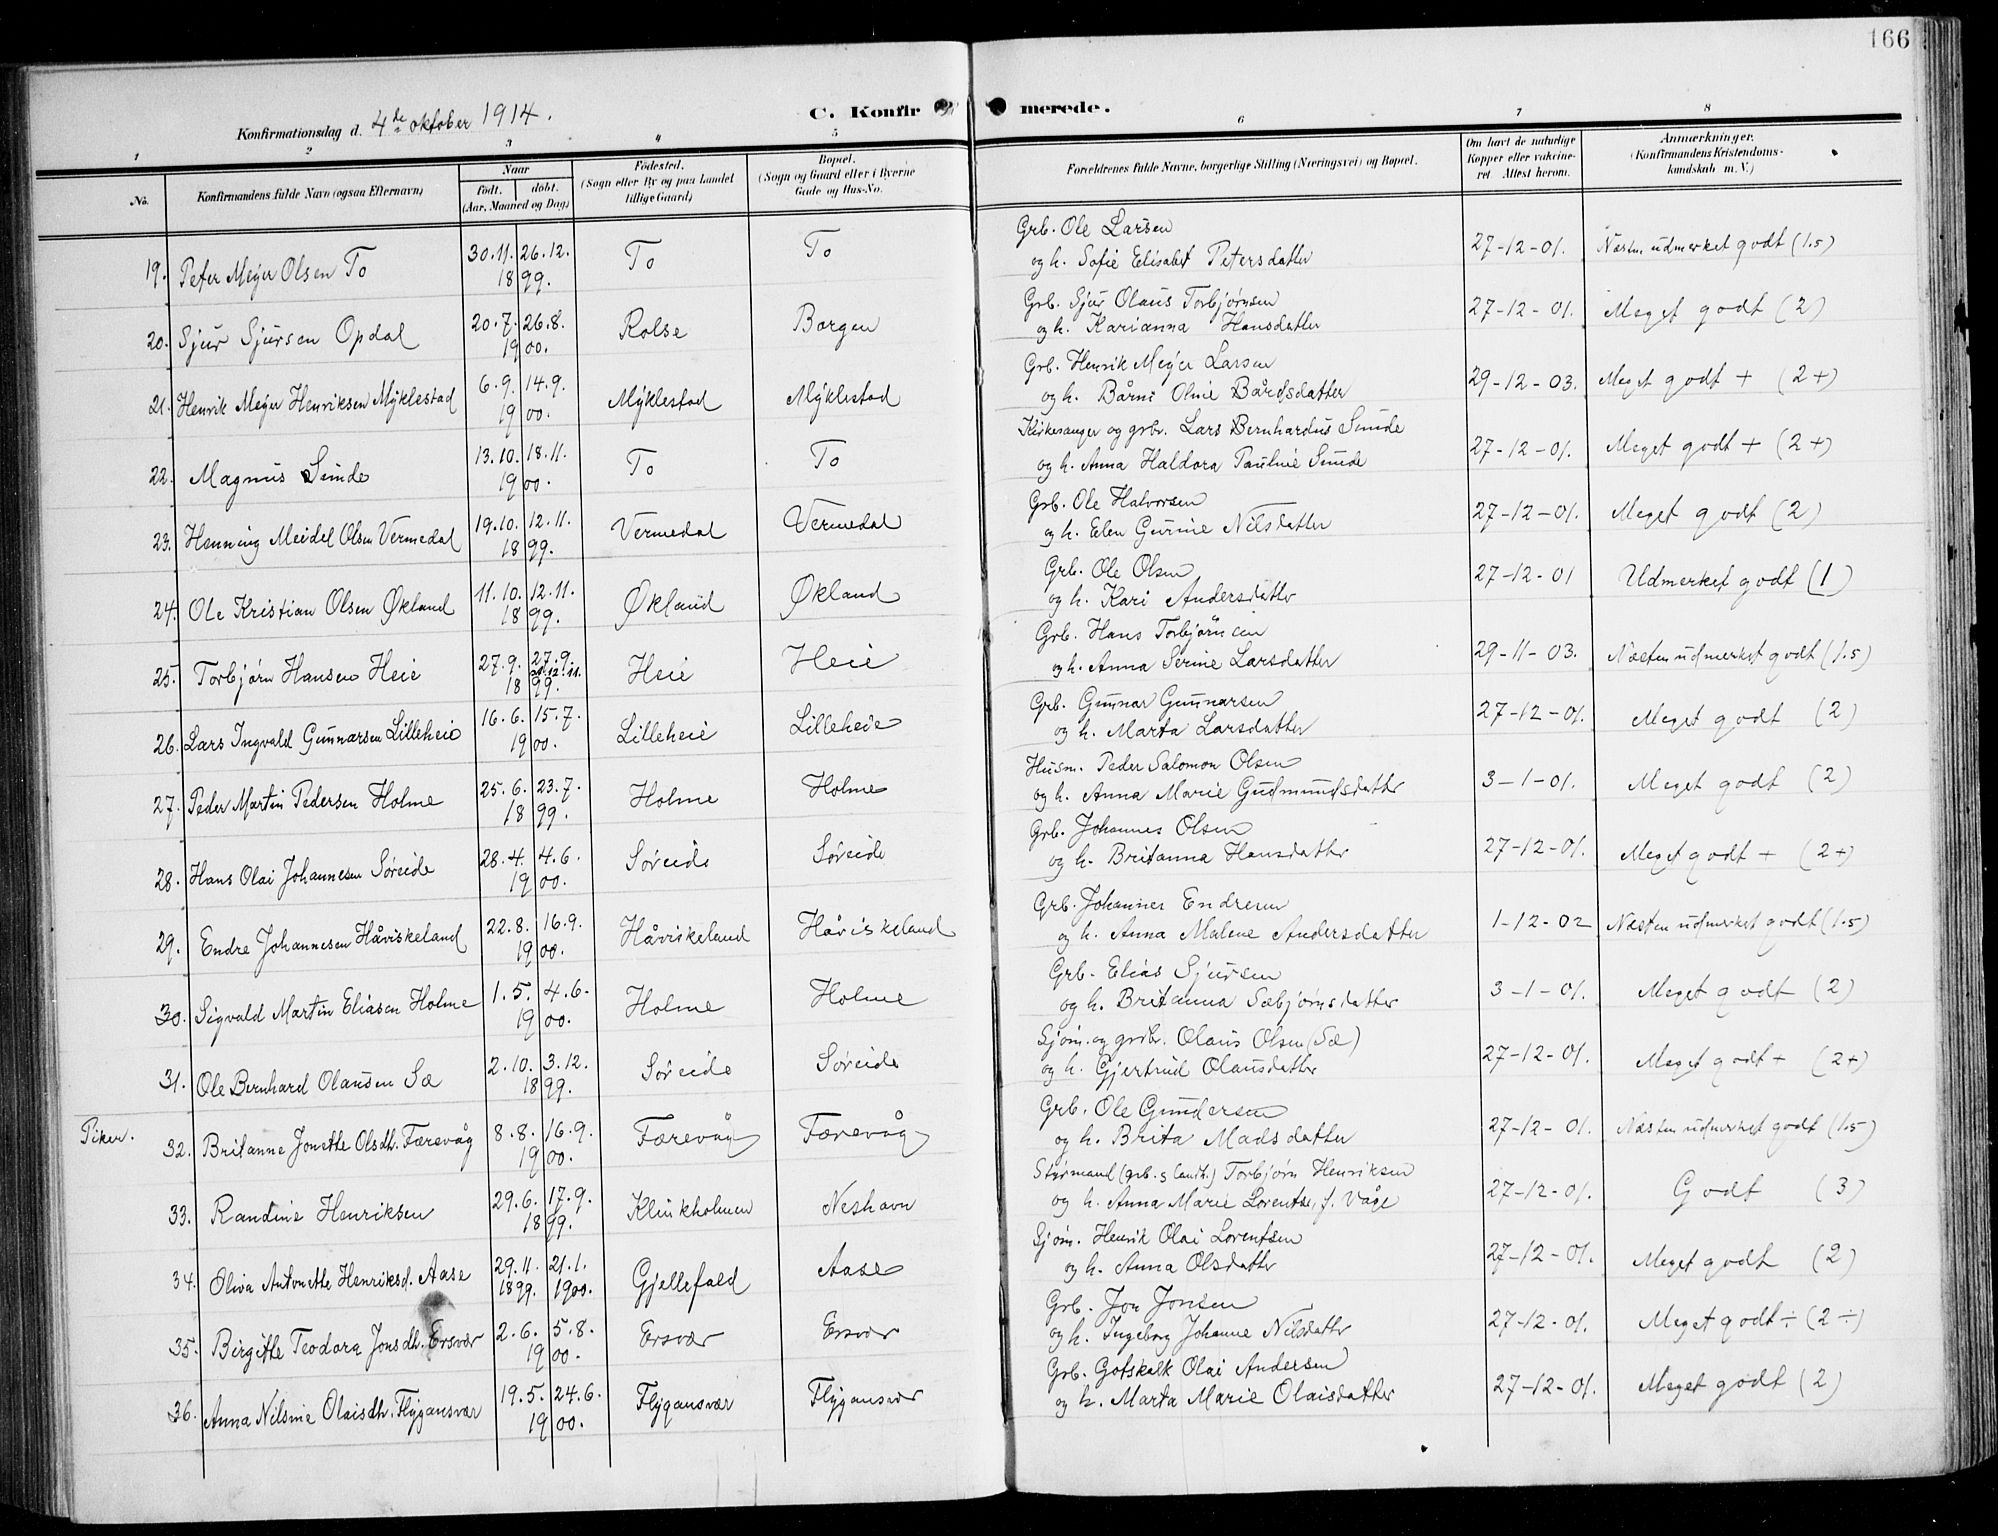 166
Konfirmationsdag d. 4de oktober 1914.
C. Konfir merede.
1 2 3 4 5 6 7 8
No.
Konfirmandens fulde Navn (ogsaa Efternavn)
Naar
født. døbt.
(Aar, Maaned og Dag)
Fødested.
(Sogn eller By og paa Landet
tillige Gaard)
Bopæl.
(Sogn og Gaard eller i Byerne
Gade og Hus-No.
Forældrenes fulde Navne, borgerlige Stilling (Næringsvei) og Bopæl.
Om havt de naturlige
Kopper eller vakcine-
ret. Attest herom.
Anmærkninger.
(Konfirmandens Kristendoms-
kundskab m. V.)
19. Peter Meyer Olsen To 30.11. 26.12. 1899. To To Grb. Ole Larsen
og h. Sofie Elisabet Petersdatter 27-12-01. Næsten udmerket godt (1.5)
20. Sjur Sjursen Opdal 20.7. 26.8. 1900. Rolse Borgen Grb. Sjur Olaus Torbjørnsen
og h. Karianna Hansdatter 27-12-01. Meget godt (2)
21. Henrik Meyer Henriksen Myklestad 6.9. 14.9. 1900. Myklestad Myklestad Grb. Henrik Meyer Larsen
og h. Bårni Oline Bårdsdatter 29-12-03. Meget godt + (2+)
22. Magnus Sunde 13.10. 18.11. 1900. To To Kirkesanger og grbr. Lars Bernhardus Sunde
og h. Anna Haldora Pauline Sunde 27-12-01. Meget godt + (2+)
23. Henning Meidel Olsen Vermedal 19.10. 12.11. 1899. Vermedal Vermedal Grb. Ole Halvorsen
og h. Elen Gurine Nilsdatter 27-12-01. Meget godt (2)
24. Ole Kristian Olsen Økland 11.10. 12.11. 1899. Økland Økland Grb. Ole Olsen
og h. Kari Andersdatter 27-12-01 Udmerket godt (1)
25. Torbjørn Hansen Heie 27.9. 27.9. 1899. Heie Heie Grb. Hans Torbjørnsen
og h. Anna Serine Larsdatter 29-11-03. Næsten udmerket godt (1.5)
26. Lars Ingvald Gunnarsen Lilleheie 16.6. 15.7. 1900. Lilleheie Lilleheie Grb. Gunnar Gunnarsen
og h. Marta Larsdatter 27-12-01. Meget godt (2)
27. Peder Martin Pedersen Holme 25.6. 23.7. 1899. Holme Holme Husm. Peder Salomon Olsen
og h. Anna Marie Gudmundsdatter 3-1-01. Meget godt (2)
28. Hans Olai Johannesen Søreide 28.4. 4.6. 1900. Søreide Søreide Grb. Johannes Olsen
og h. Britanna Hansdatter 27-12-01. Meget godt + (2+)
29. Endre Johannesen Håviskeland 22.8. 16.9. 1900. Håviskeland Håviskeland Grb. Johannes Endresen
og h. Anna Malene Andersdatter 1-12-02 Næsten udmerket godt (1.5)
30. Sigvald Martin Eliasen Holme 1.5. 4.6. 1900. Holme Holme Grb. Elias Sjursen
og h. Britanna Sæbjørnsdatter 3-1-01. Meget godt (2)
31. Ole Bernhard Olausen Sæ 2.10. 3.12. 1899. Søreide Søreide Sjøm. og grbr. Olaus Olsen (Sæ)
og h. Gjertrud Olausdatter 27-12-01. Meget godt + (2+)
Piker.
32. Britanne Jonette Olsdtr. Færevåg 8.8. 16.9. 1900. Færevåg Færevåg Grb. Ole Gundersen
og h. Brita Madsdatter 27-12-01. Næsten udmerket godt (1.5)
33. Randine Henriksen 29.6. 17.9. 1899. Klinkholmen Neshavn Styrmand (grb. s landh.) Torbjørn Henriksen
og h. Anna Marie Lorentse, f. Våge 27-12-01. Godt (3)
34. Oliva Antonette Henriksd. Aase 29.11. 1899. 21.1. 1900. Gjellefald Aase Sjøm. Henrik Olai Lorentsen
og h. Anna Olsdatter 27-12-01. Meget godt (2)
35. Birgitte Teodora Jonsdtr. Ersvær 2.6. 5.8. 1900. Ersvær Ersvær Grb. Jon Jonsen
og h. Ingeborg Johanne Nilsdatter 27-12-01. Meget godt ÷ (2 ÷)
36. Anna Nilsine Olaisdtr. Flygansvær 19.5. 24.6. 1900. Flygansvær Flygansvær Grb. Gotskalk Olai Andersen
og h. Marta Marie Olaisdatter 27-12-01. Meget godt (2)